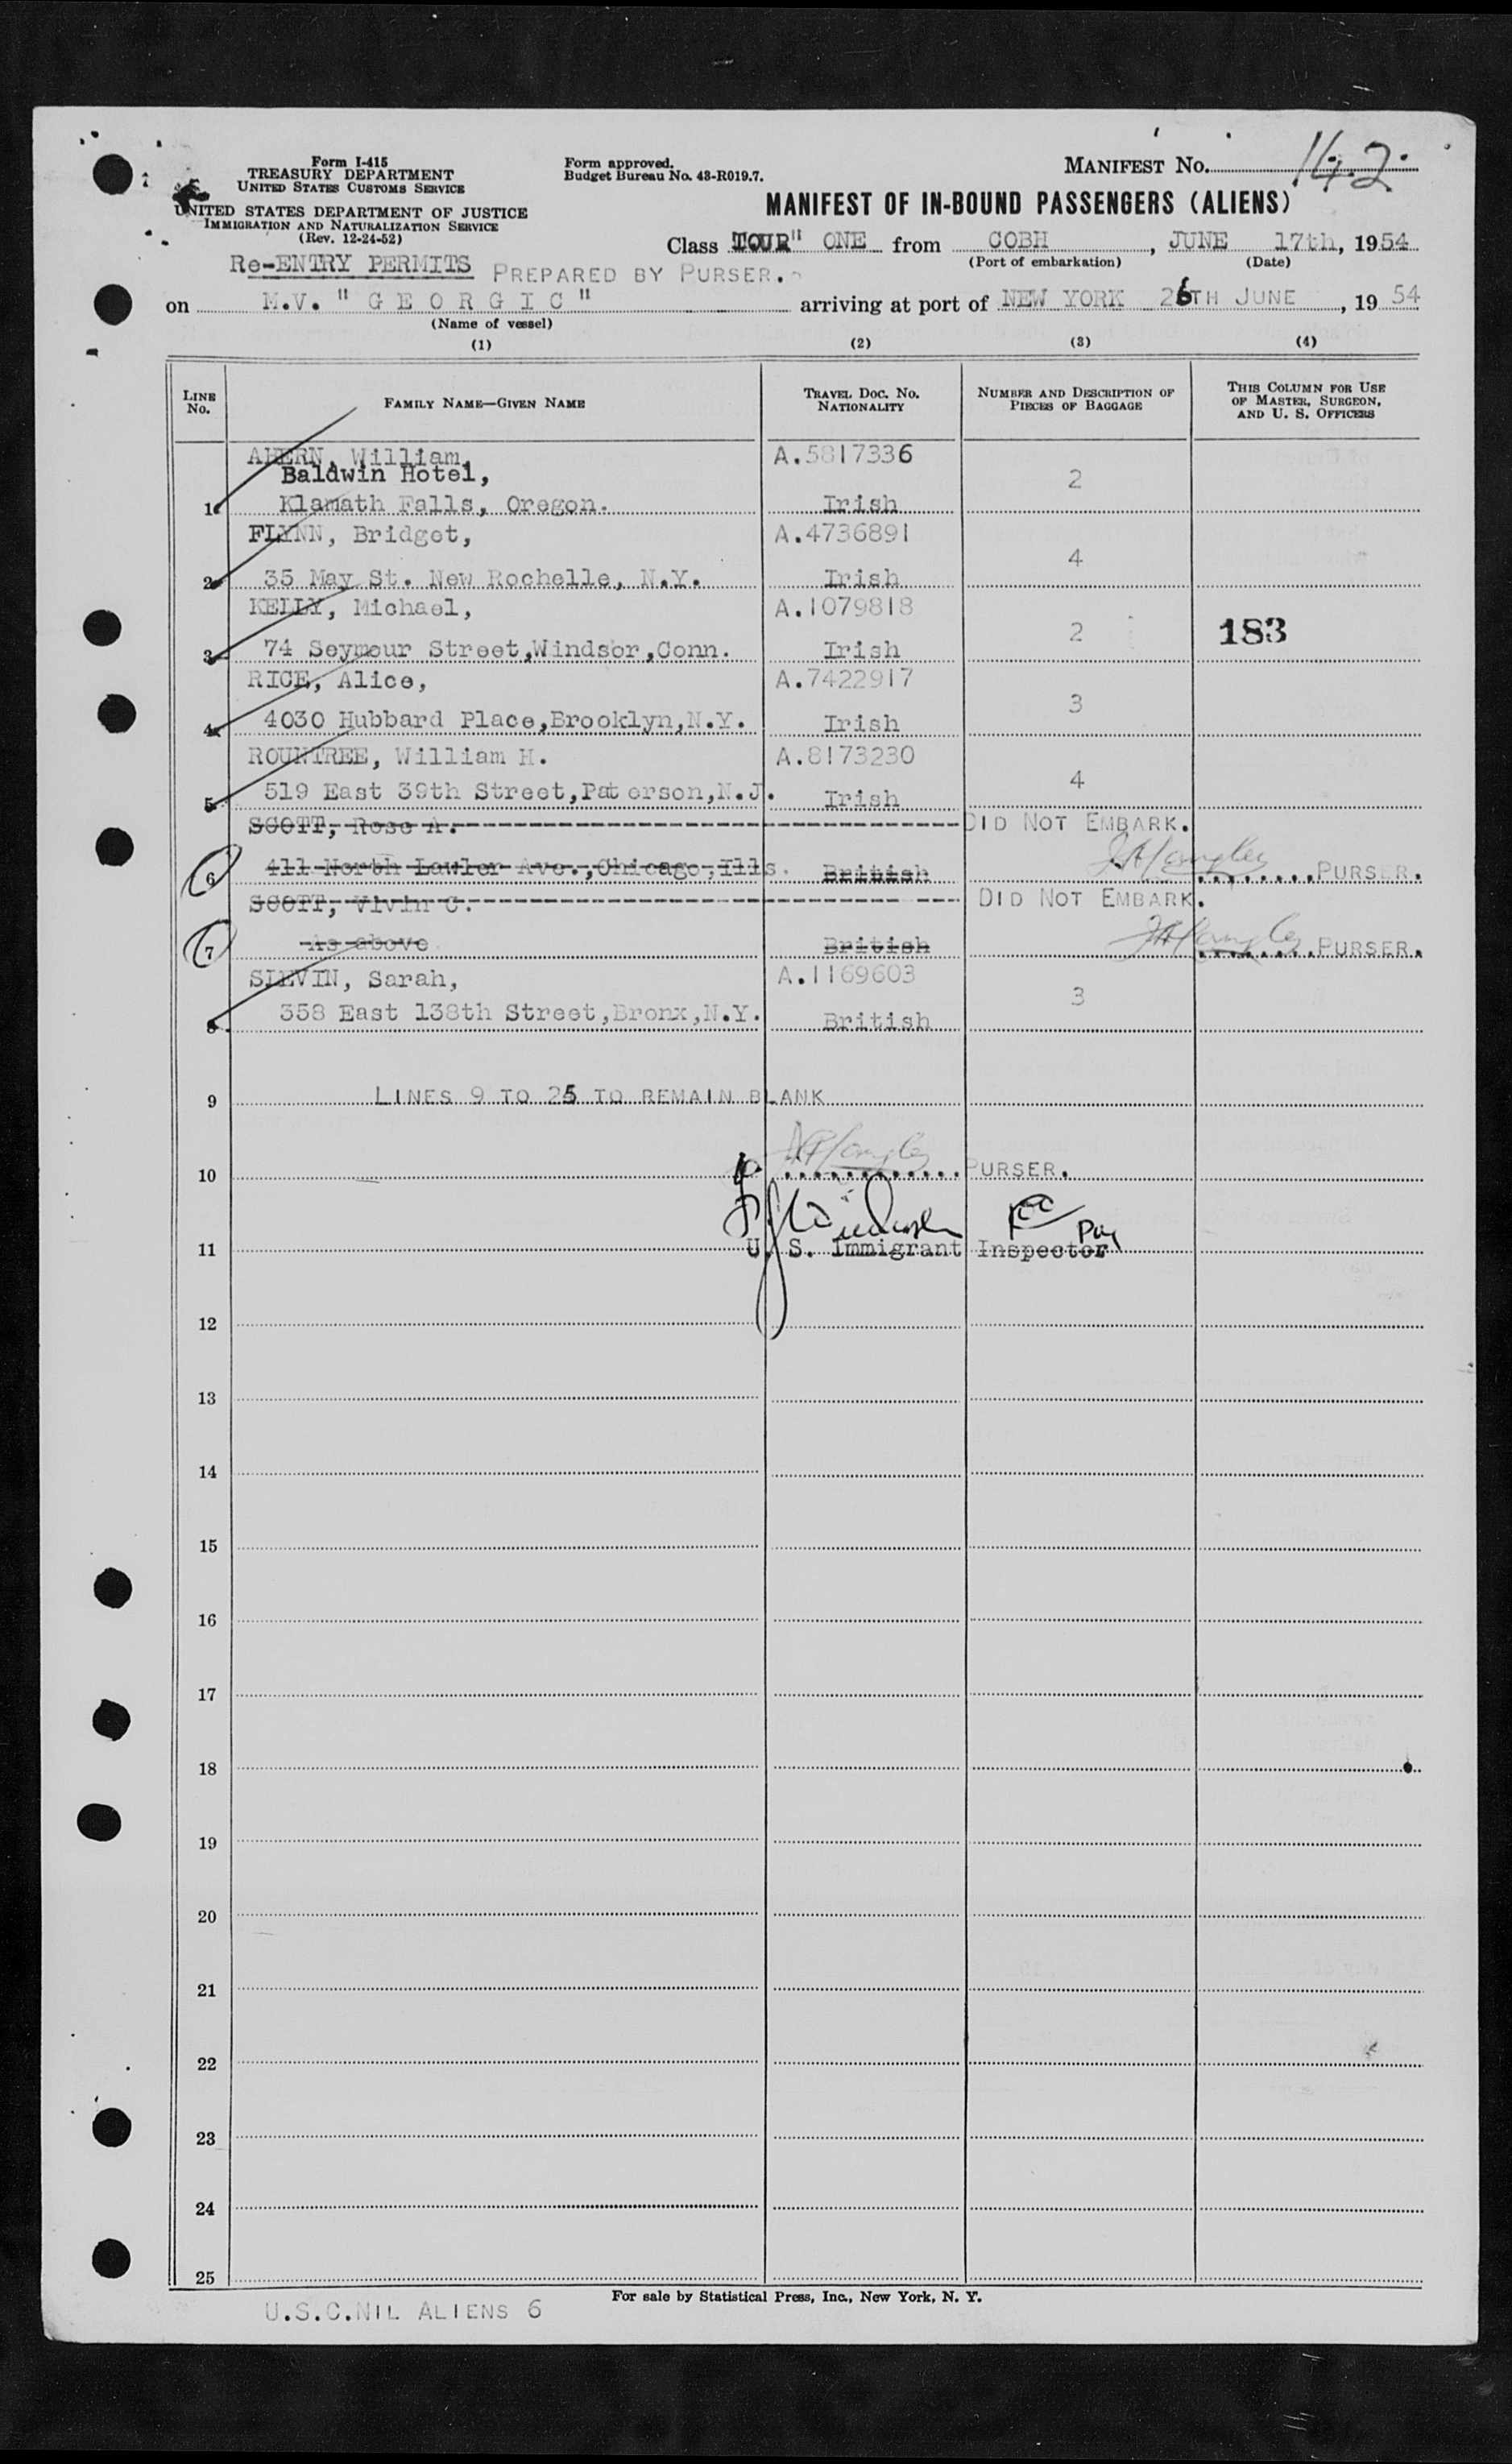 Form I-415
TREASURY DEPARTMENT
UNITED STATES CUSTOMS SERVICE
UNITED STATES DEPARTMENT OF JUSTICE
IMMIGRATION AND NATURALIZATION SERVICE
(Rev. 12-24-52)
Form approved.
Budget Bureau No. 43-R019.7.
MANIFEST No. 142
MANIFEST OF IN-BOUND PASSENGERS (ALIENS)
Class TOUR" ONE from COBH, JUNE 17th, 1954
(Port of embarkation) (Date)
Re-ENTRY PERMITS PREPARED BY PURSER.
on M.V. "GEORGIC" arriving at port of NEW YORK 26TH JUNE, 1954
(Name of vessel)
(1) (2) (3) (4)
LINE No. FAMILY NAME—GIVEN NAME TRAVEL DOC. NO. NATIONALITY NUMBER AND DESCRIPTION OF PIECES OF BAGGAGE THIS COLUMN FOR USE OF MASTER, SURGEON, AND U. S. OFFICERS
AHERN, William, A.5817336
Baldwin Hotel, 2
1 Klamath Falls, Oregon. Irish
FLYNN, Bridget, A.4736891
4
2 35 May St. New Rochelle, N.Y. Irish
KELLY, Michael, A.1079818
2 183
3 74 Seymour Street,Windsor,Conn. Irish
RICE, Alice, A.7422917
3
4 4030 Hubbard Place,Brooklyn,N.Y. Irish
ROUNTREE, William H. A.8173230
4
5 519 East 39th Street,Paterson,N.J. Irish
SCOTT, Rose A. DID NOT EMBARK.
6 411 North Lawler Ave.,Chicago,Ills. British PURSER.
SCOTT, Vivin C. DID NOT EMBARK.
7 As above British PURSER.
SLEVIN, Sarah, A.1169603
3
8 358 East 138th Street,Bronx,N.Y. British
9 LINES 9 TO 25 TO REMAIN BLANK
10 PURSER.
11 U. S. Immigrant Inspector
12
13
14
15
16
17
18
19
20
21
22
23
24
25
For sale by Statistical Press, Inc., New York, N. Y.
U.S.C.NIL ALIENS 6